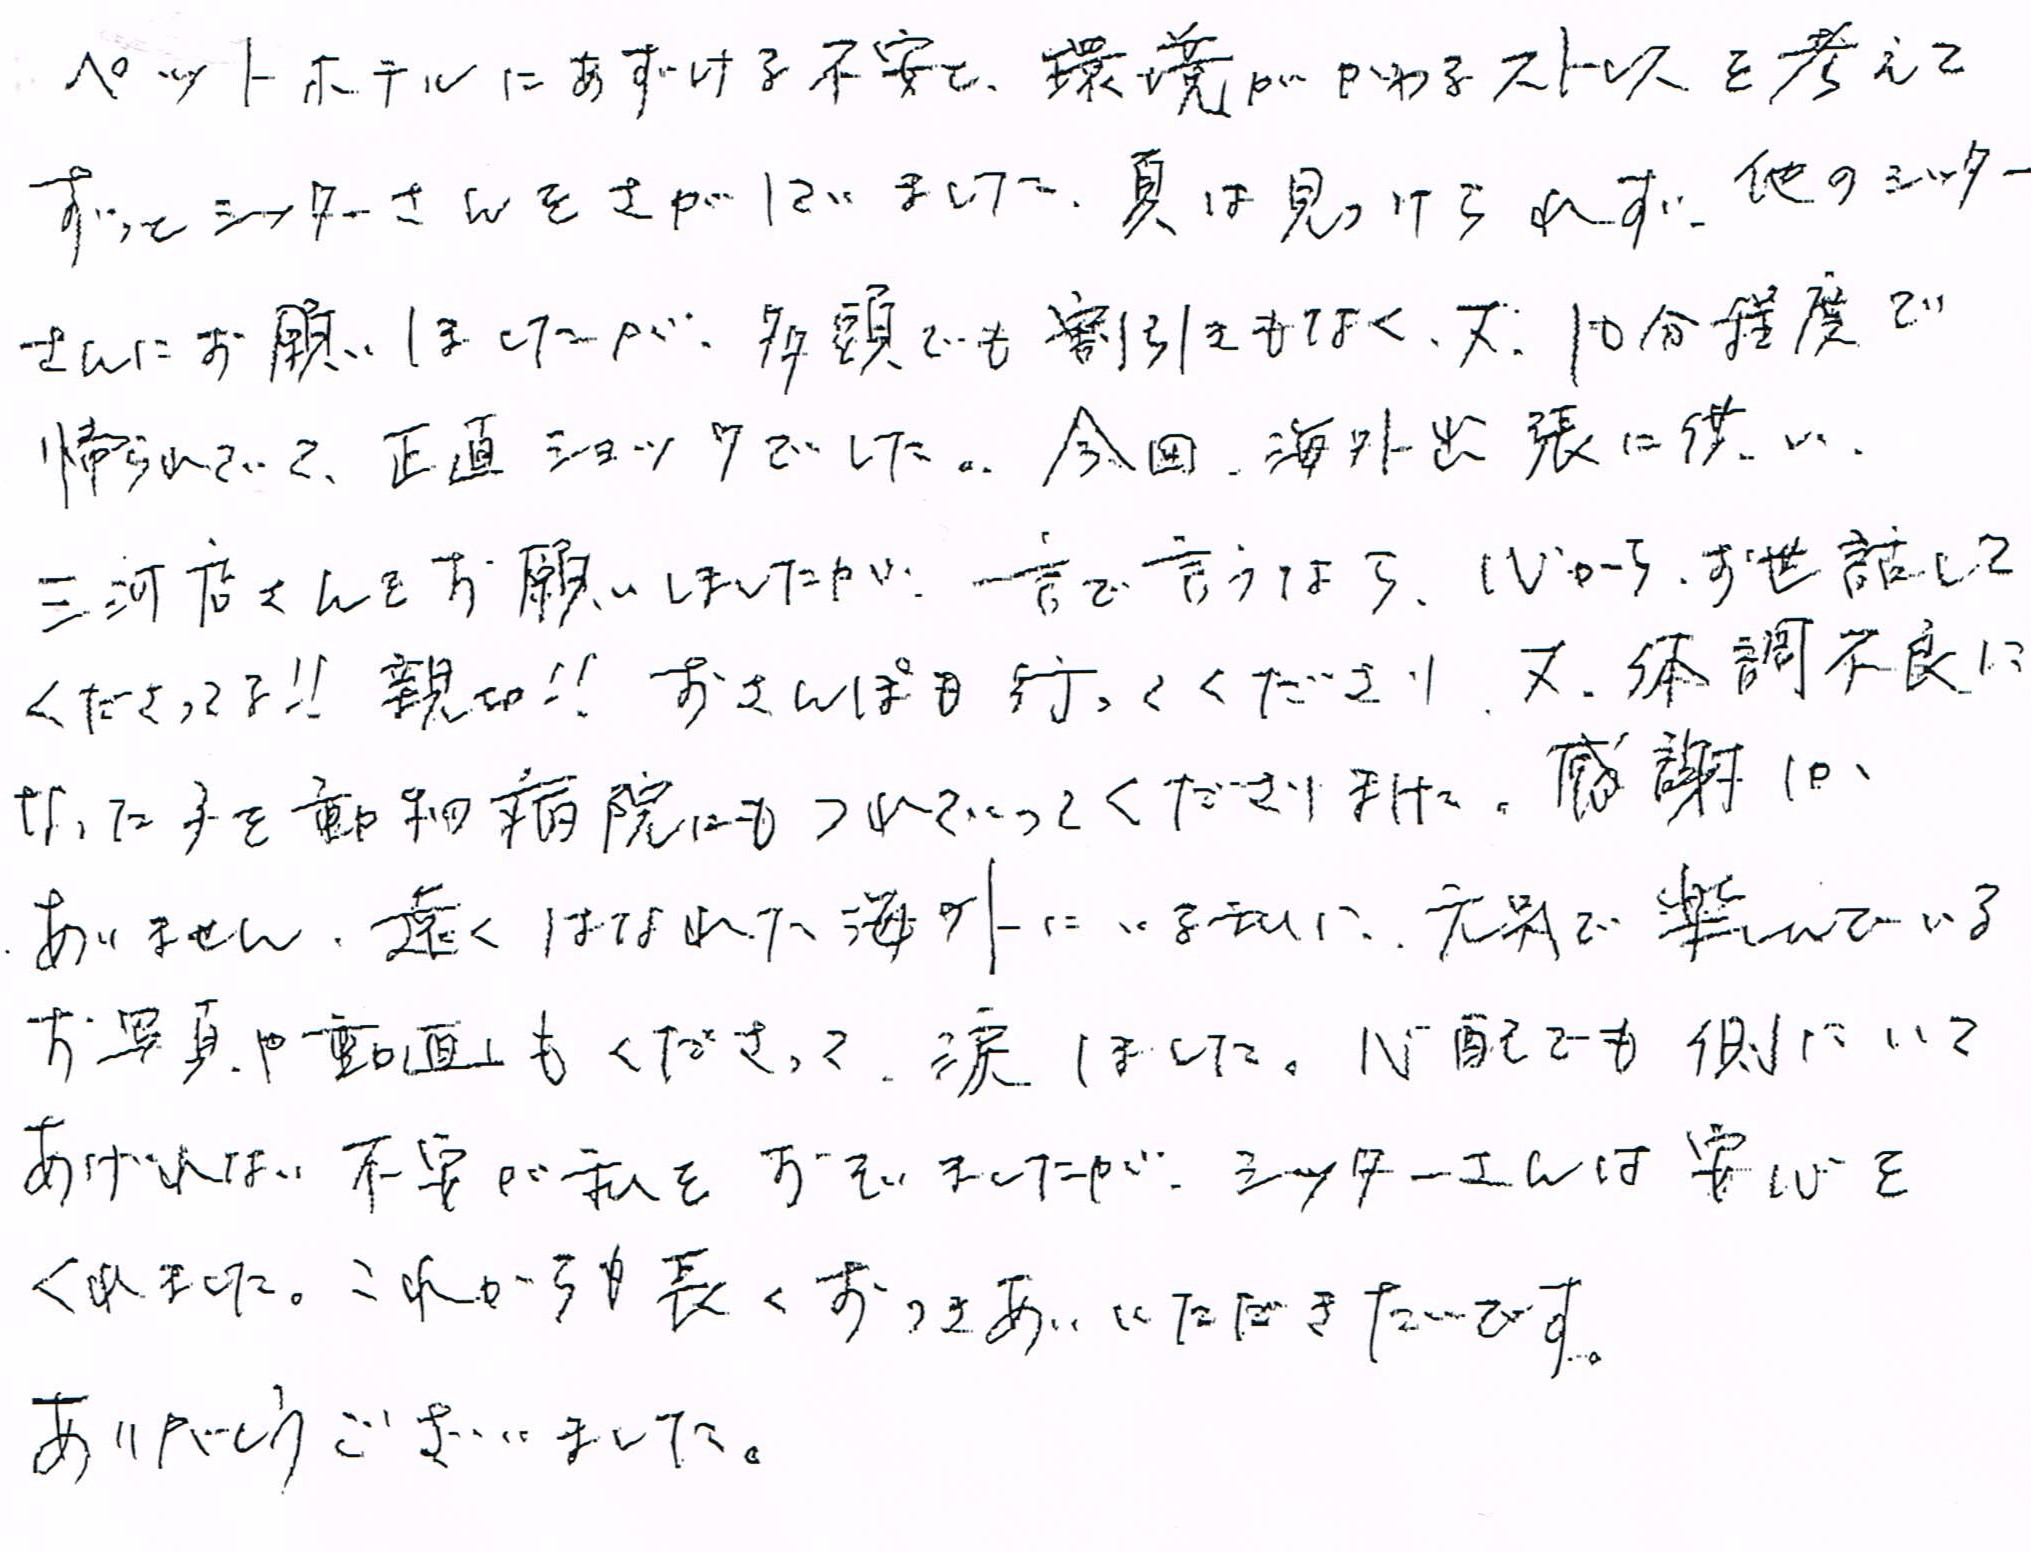 ペットホテルにあずける不安と、環境がかわるストレスを考えて
ずっとシッターさんをさがしていました。夏は見つけられず、他のシッター
さんにお願いしましたが、多頭でも割引きもなく、又、10分程度で
帰られていて、正直ショックでした。今回、海外出張に伴い、
三河店さんをお願いしましたが、一言で言うなら、心から、お世話して
くださってる!! 親切!! おさんぽも行ってくださり、又、体調不良に
なった子を動物病院にもつれていってくださりました。感謝しか、
ありません。遠くはなれた海外にいる私に、元気で楽しんでいる
お写真や動画もくださって、涙しました。心配でも側にいて
あげれない不安が私をおそいましたが、シッターさんは安心を
くれました。これからも長くおつきあいいただきたいです。
ありがとうございました。